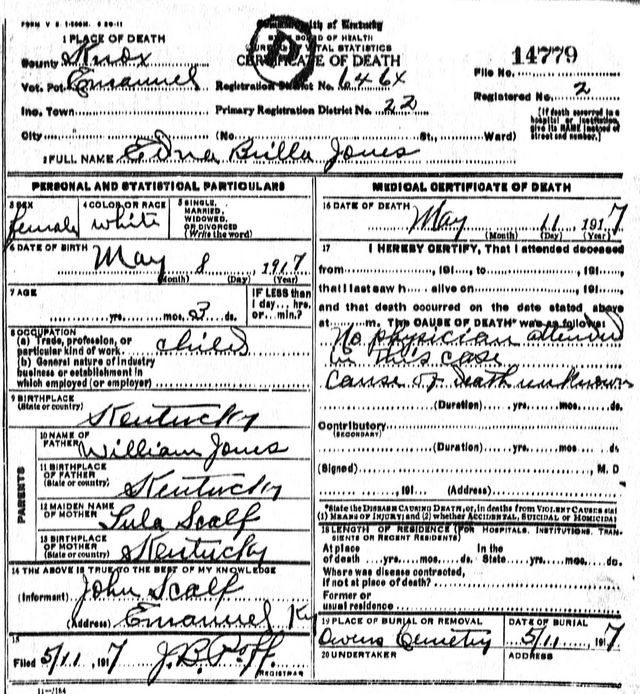 FORM V S 1-500M. 6 20-11
1 PLACE OF DEATH
Commonwealth of Kentucky
STATE BOARD OF HEALTH
BUREAU OF VITAL STATISTICS
CERTIFICATE OF DEATH
14779
County Knox
File No.
Vot. Pct. Emanuel
Registration District No. 646X
Registered No. 2
Inc. Town
Primary Registration District No. 22
(If death occurred in a hospital or institution, give its NAME instead of street and number.)
City (No. St., Ward)
2 FULL NAME Edna Brilla Jones
PERSONAL AND STATISTICAL PARTICULARS
3 SEX
female
4 COLOR OR RACE
white
5 SINGLE,
MARRIED,
WIDOWED,
OR DIVORCED
(Write the word)
6 DATE OF BIRTH
May 8, 1917
(Month) (Day) (Year)
7 AGE
yrs. mos. 3 ds.
IF LESS than
1 day... hrs.
or... min.?
8 OCCUPATION
(a) Trade, profession, or
particular kind of work child
(b) General nature of industry
business or establishment in
which employed (or employer)
9 BIRTHPLACE
(State or country)
Kentucky
PARENTS
10 NAME OF
FATHER
William Jones
11 BIRTHPLACE
OF FATHER
(State or country)
Kentucky
12 MAIDEN NAME
OF MOTHER
Lula Scalf
13 BIRTHPLACE
OF MOTHER
(State or country)
Kentucky
14 THE ABOVE IS TRUE TO THE BEST OF MY KNOWLEDGE
(Informant) John Scalf
(Address) Emanuel Ky
15
Filed 5/11, 1917
REGISTRAR
11-7184
MEDICAL CERTIFICATE OF DEATH
16 DATE OF DEATH
May 11, 1917
(Month) (Day) (Year)
17 I HEREBY CERTIFY, That I attended deceased
from ............, 191..., to ............, 191...,
that I last saw h... alive on ............, 191...,
and that death occurred on the date stated above
at ......m. The CAUSE OF DEATH* was as follows:
No physician attended
in this case
Cause of death unknown
(Duration) yrs. mos. ds.
Contributory
(SECONDARY)
(Duration) yrs. mos. ds
(Signed) M. D
, 191 (Address)
*State the DISEASE CAUSING DEATH, or, in deaths from VIOLENT CAUSES stat
(1) MEANS OF INJURY; and (2) whether ACCIDENTAL, SUICIDAL or HOMICIDA
18 LENGTH OF RESIDENCE (FOR HOSPITALS, INSTITUTIONS, TRAN-
SIENTS OR RECENT RESIDENTS)
At place In the
of death yrs. mos. ds. State yrs. mos. ds.
Where was disease contracted,
if not at place of death?
Former or
usual residence
19 PLACE OF BURIAL OR REMOVAL
Owens Cemetry
DATE OF BURIAL
5/11, 1917
20 UNDERTAKER
ADDRESS